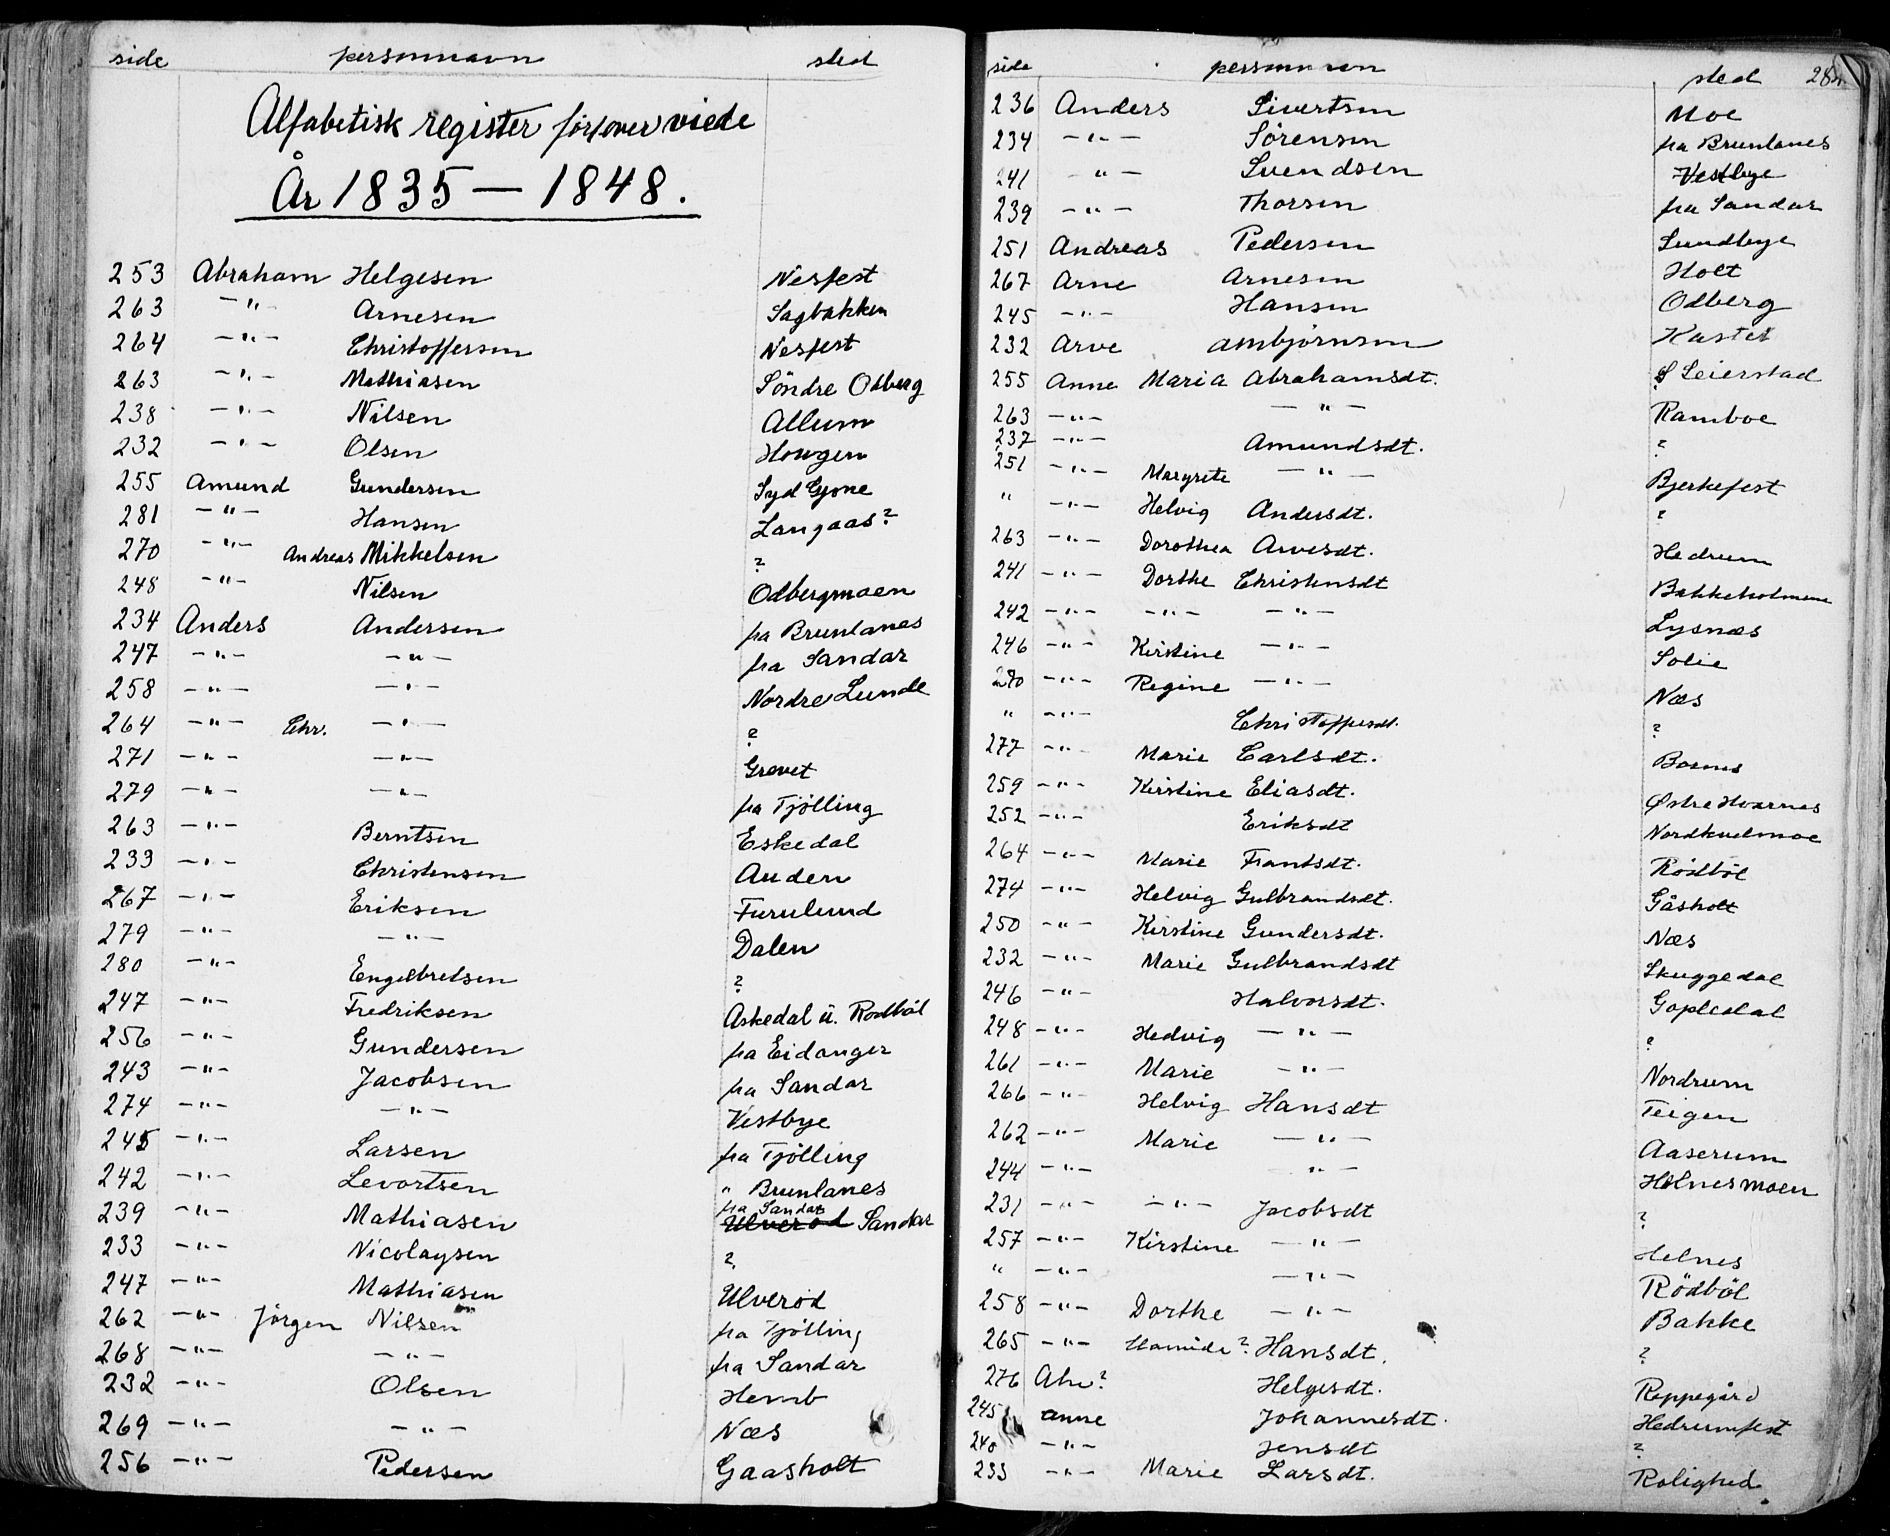 side personnavn sted
Alfabetisk register for over viede
År 1835 — 1848.
253 Abraham Helgesen Nesfest
263 -"- Arnesen Sagbakken
264 -"- Christoffersen Nesfest
263 -"- Mathiasen Söndre Odberg
238 -"- Nilsen Allum
232 -"- Olsen Hougen
255 Amund Gundersen Syd Gjone
281 -"- Hansen Langaas?
270 -"- Andreas Mikkelsen ?
248 -"- Nilsen Odbergmoen
234 Anders Andersen fra Brunlanes
247 -"- -"- fra Sandar
258 -"- -"- Nordre Lunde
264 -"- Chr. -"- ?
271 -"- -"- Grevet
279 -"- -"- fra Tjölling
263 -"- Berntsen Eskedal
233 -"- Christensen Auden
267 -"- Eriksen Furulund
279 -"- -"- Dalen
280 -"- Engelbretsen ?
247 -"- Fredriksen Askedal u. Rödböl
256 -"- Gundersen fra Eidanger
243 -"- Jacobsen fra Sandar
274 -"- -"- Vestbye
245 -"- Larsen fra Tjölling
242 -"- Levortsen " Brunlanes
239 -"- Mathiasen fra Sandar Ulveröd Sandar
233 -"- Nicolaysen ?
247 -"- Mathiasen Ulveröd
262 -"- Jörgen Nilsen fra Tjölling
268 -"- -"- fra Sandar
232 -"- Olsen Hemb
269 -"- -"- Næs
256 -"- Pedersen Gaasholt
side personnavn sted
236 Anders Sivertsen Moe
234 -"- Sörensen fra Brunlanes
241 -"- Svendsen Vestbye
239 -"- Thorsen fra Sandar
251 Andreas Pedersen Lundbye
267 Arne Arnesen Holt
245 -"- Hansen Odberg
232 Arve Ambjørnsen Kastet
255 Anne Maria Abrahamsdt. S Seierstad
263 -"- -"- Ramboe
237 -"- Amundsdt. ?
251 -"- Margrete -"- Bjerkefest
" -"- Helvig Andersdt. ?
263 -"- Dorothea Arvesdt. Hedrum
241 -"- Dorthe Christensdt Bakkeholmene
242 -"- -"- -"- Lysnæs
246 -"- Kirstine -"- Solie
270 -"- Regine -"- Næs
" -"- Christoffersdt. ?
277 -"- Marie Carlsdt.
259 -"- Kirstine Eliasdt. Østre Hvarnes
252 -"- Eriksdt Nordkvelmoe
264 -"- Marie Frantsdt. Rödböl
274 -"- Helvig Gulbrandsdt. Gåsholt
250 -"- Kirstine Gundersdt. Næs
232 -"- Marie Gulbrandsdt Skuggedal
246 -"- Halvorsdt. Gopledal
248 -"- Hedvig -"- ?
261 -"- Marie -"- Nordrum
266 -"- Helvig Hansdt Teigen
262 -"- Marie -"- Aaserum
244 -"- -"- Holnesmoen
231 -"- -"- Jacobsdt ?
257 -"- Kirstine -"- Helnes
" -"- -"- Rödböl
258 -"- Dorthe -"- Bakke
265 -"- Hansdt. ?
276 Helgesdt. Roppegård
245 Anne Johannesdt. Hedrumfest
240 -"- Jensdt ?
233 -"- Marie Larsdt. Rolighed